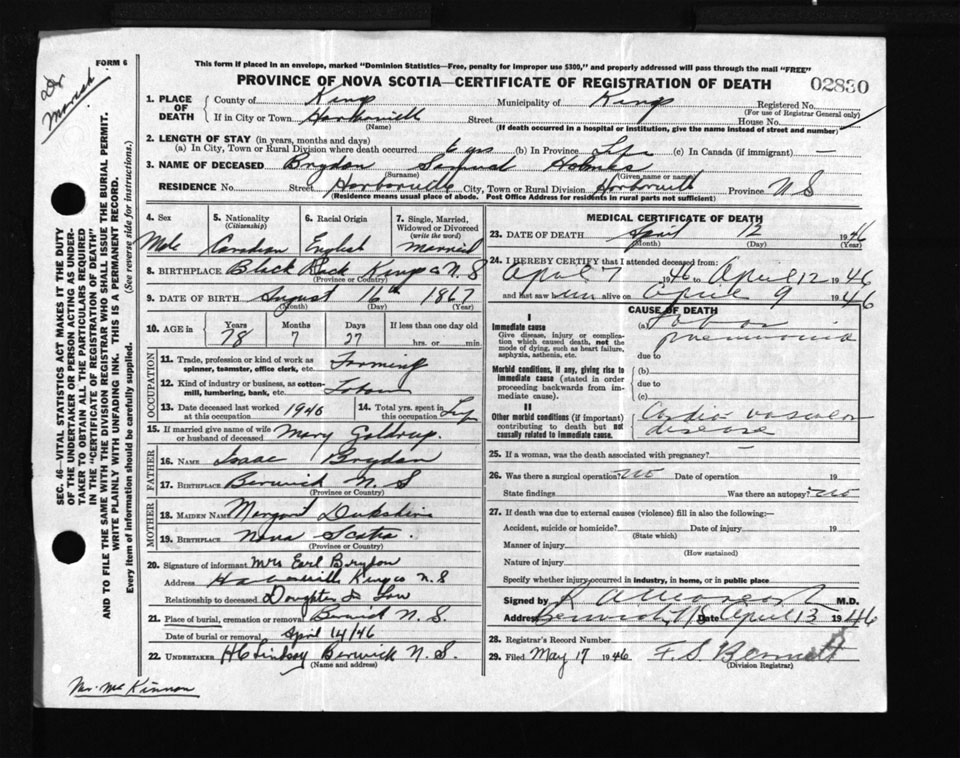 This form if placed in an envelope, marked "Dominion Statistics—Free, penalty for improper use $300", and properly addressed will pass through the mail "FREE"
FORM 6
PROVINCE OF NOVA SCOTIA—CERTIFICATE OF REGISTRATION OF DEATH
02830
Dr
SEC. 46—VITAL STATISTICS ACT MAKES IT THE DUTY
OF THE UNDERTAKER OR PERSON ACTING AS UNDER-
TAKER TO OBTAIN ALL THE PARTICULARS REQUIRED
IN THE "CERTIFICATE OF REGISTRATION OF DEATH"
AND TO FILE THE SAME WITH THE DIVISION REGISTRAR WHO SHALL ISSUE THE BURIAL PERMIT.
WRITE PLAINLY WITH UNFADING INK. THIS IS A PERMANENT RECORD.
Every item of information should be carefully supplied. (See reverse side for instructions.)
1. PLACE OF DEATH County of Kings Municipality of Kings Registered No.
(For use of Registrar General only)
If in City or Town Harborville Street House No.
(Name) (If death occurred in a hospital or institution, give the name instead of street and number)
2. LENGTH OF STAY (in years, months and days)
(a) In City, Town or Rural Division where death occurred 6 yrs (b) In Province Life (c) In Canada (if immigrant) —
3. NAME OF DECEASED Brydon Samuel Holmes
(Surname) (Given name or names)
RESIDENCE No. Street Harborville City, Town or Rural Division Harborville Province N S
(Residence means usual place of abode. Post Office Address for residents in rural parts not sufficient)
4. Sex Male
5. Nationality (Citizenship) Canadian
6. Racial Origin English
7. Single, Married, Widowed or Divorced (write the word) Married
8. BIRTHPLACE Black Rock Kings Co N. S
(Province or Country)
9. DATE OF BIRTH August 16th 1867
(Month) (Day) (Year)
10. AGE in Years 78 Months 7 Days 27 If less than one day old
hrs. or min.
OCCUPATION
11. Trade, profession or kind of work as spinner, teamster, office clerk, etc. Farming
12. Kind of industry or business, as cotton-mill, lumbering, bank, etc.
13. Date deceased last worked at this occupation 1946 14. Total yrs. spent in this occupation Life
15. If married give name of wife or husband of deceased Mary Goldrup
FATHER
16. NAME Isaac Brydon
17. BIRTHPLACE Berwick N. S
(Province or Country)
MOTHER
18. MAIDEN NAME Margaret
19. BIRTHPLACE Nova Scotia.
(Province or Country)
20. Signature of informant Mrs Earl Brydon
Address Harborville Kings Co N. S
Relationship to deceased Daughter In Law
21. Place of burial, cremation or removal Berwick N. S.
Date of burial or removal April 14/46
22. UNDERTAKER H C Lindsay Berwick N. S.
(Name and address)
Mr. McKinnon
MEDICAL CERTIFICATE OF DEATH
23. DATE OF DEATH April 12 1946
(Month) (Day) (Year)
24. I HEREBY CERTIFY that I attended deceased from:
April 7 1946 to April 12 1946
and last saw him alive on April 9 1946
CAUSE OF DEATH
I
Immediate cause
Give disease, injury or complication which caused death, not the mode of dying, such as heart failure, asphyxia, asthenia, etc.
(a) Lobar pneumonia
due to
Morbid conditions, if any, giving rise to immediate cause (stated in order proceeding backwards from immediate cause).
(b)
due to
(c)
II
Other morbid conditions (if important) contributing to death but not causally related to immediate cause.
Cardio vascular disease
25. If a woman, was the death associated with pregnancy? —
26. Was there a surgical operation? no Date of operation 19
State findings Was there an autopsy? no
27. If death was due to external causes (violence) fill in also the following:—
Accident, suicide or homicide? Date of injury 19
(State which)
Manner of injury
(How sustained)
Nature of injury
Specify whether injury occurred in industry, in home, or in public place
Signed by M.D.
Address Berwick, N S Date April 13 1946
28. Registrar's Record Number
29. Filed May 17 1946 F. S. Bennett
(Division Registrar)